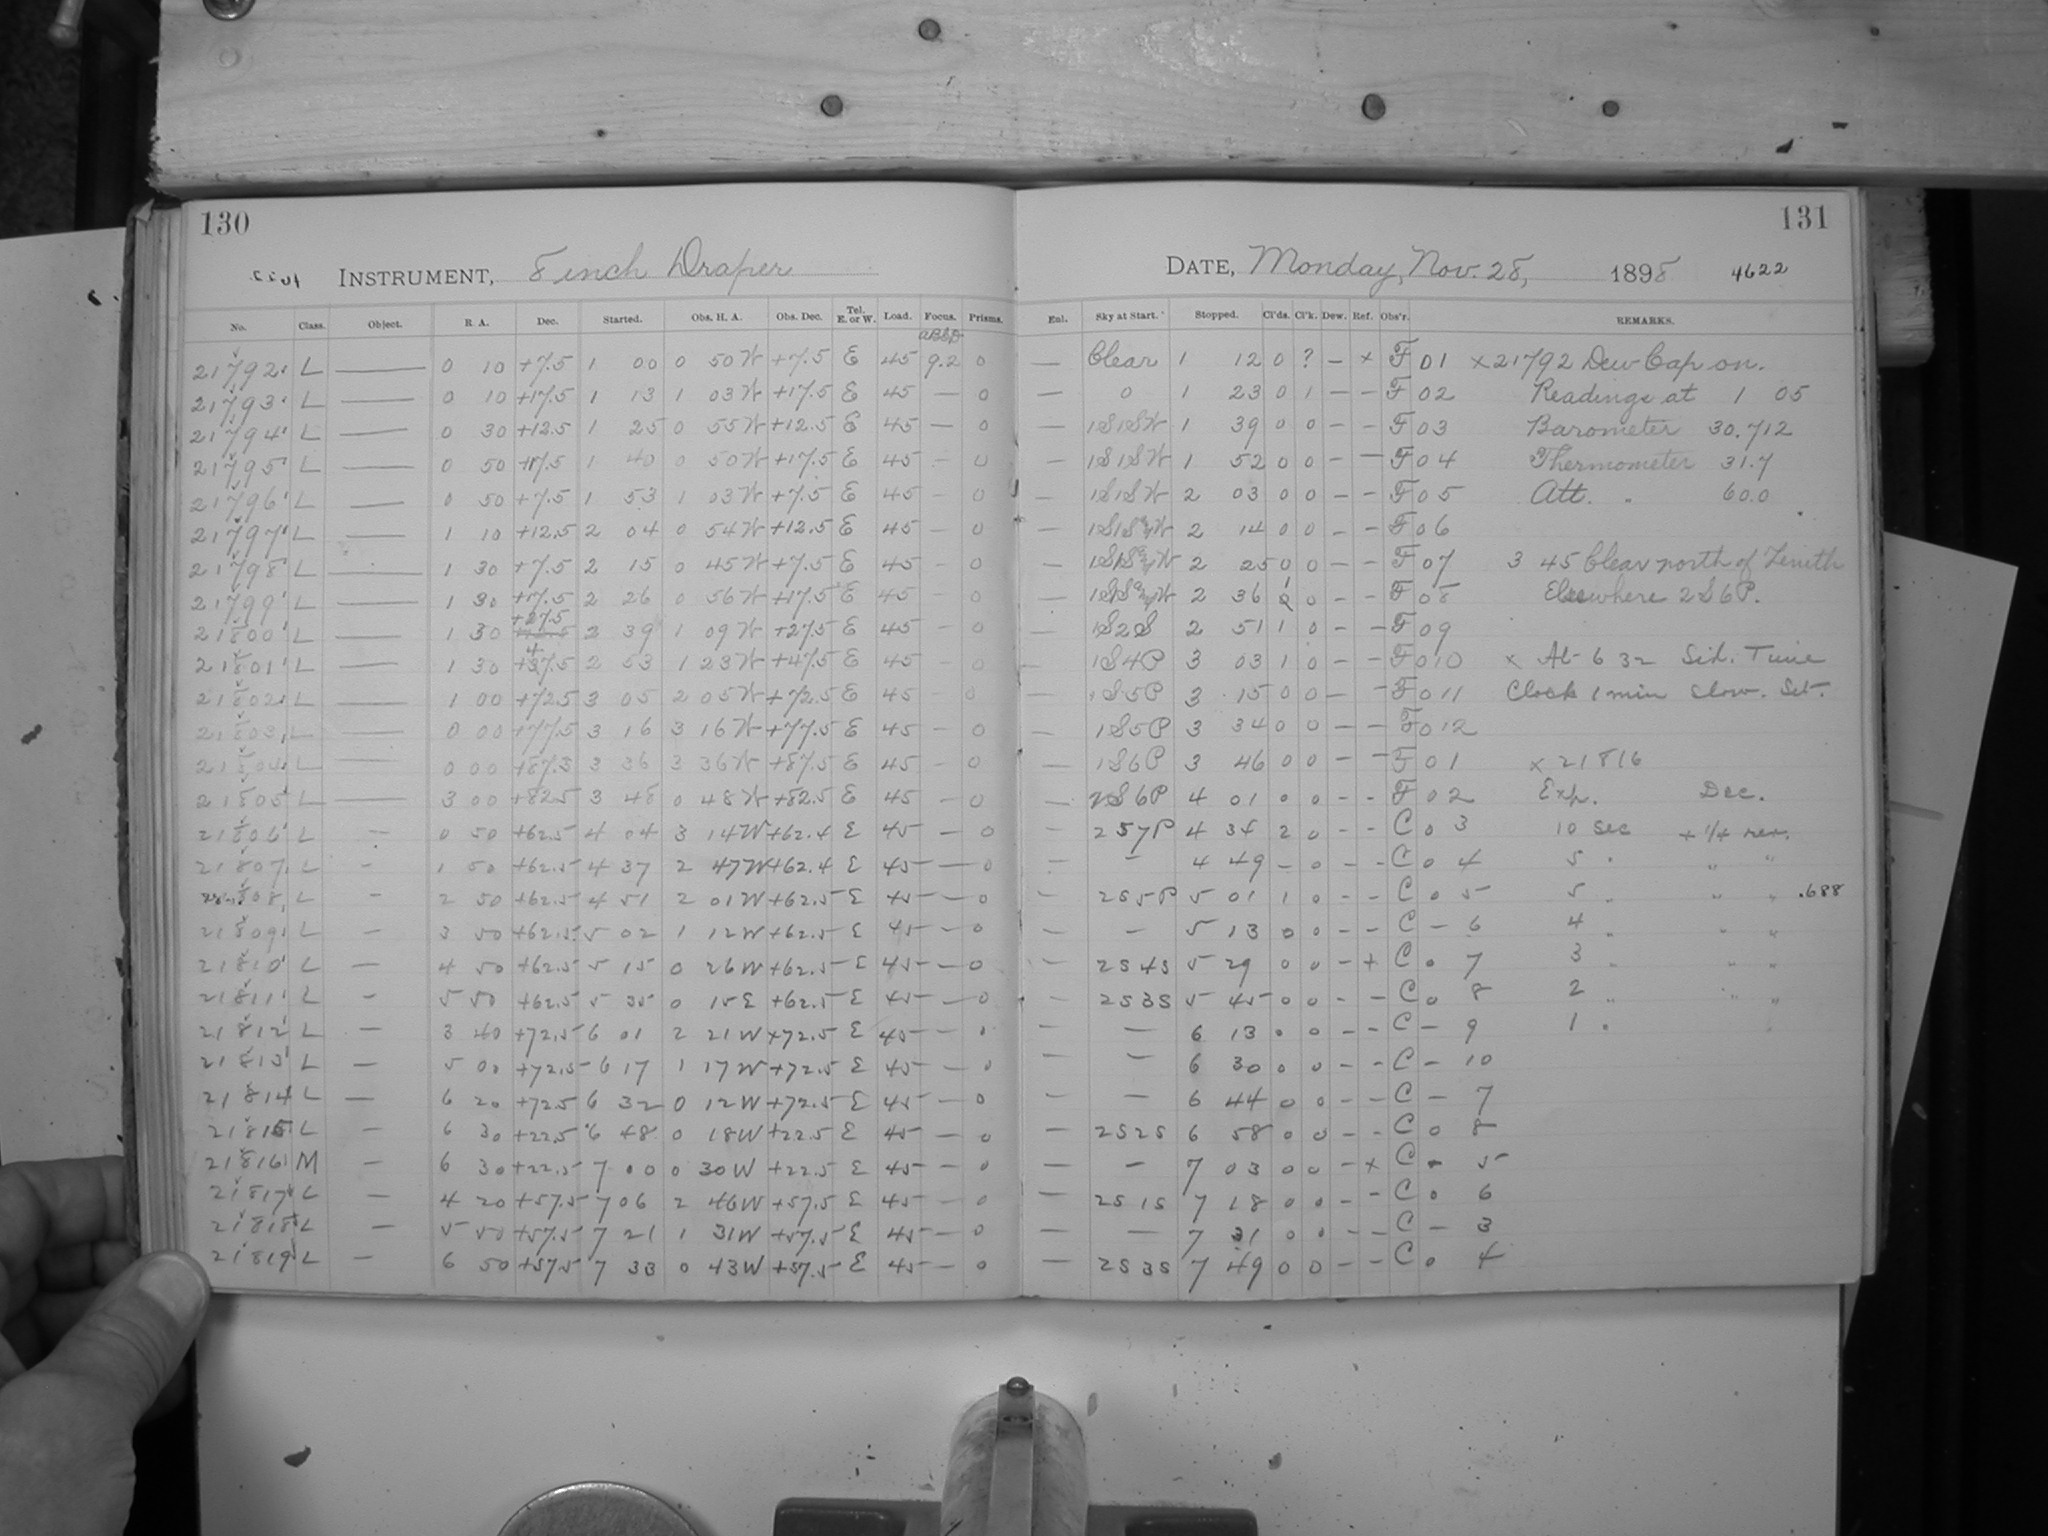 130
INSTRUMENT, 8 inch Draper
No. Class. Object. R. A. Dec. Started. Obs. H. A. Obs. Dec. Tel. E. or W. Load. Focus. Prisms.
21792 L — 0 10 +7.5 1 00 0 50 W +7.5 E 45 9.2 0
21793 L — 0 10 +17.5 1 13 1 03 W +17.5 E 45 — 0
21794 L — 0 30 +12.5 1 25 0 55 W +12.5 E 45 — 0
21795 L — 0 50 +17.5 1 40 0 50 W +17.5 E 45 — 0
21796 L — 0 50 +7.5 1 53 1 03 W +7.5 E 45 — 0
21797 L — 1 10 +12.5 2 04 0 54 W +12.5 E 45 — 0
21798 L — 1 30 +7.5 2 15 0 45 W +7.5 E 45 — 0
21799 L — 1 30 +17.5 2 26 0 56 W +17.5 E 45 — 0
21800 L — 1 30 +27.5 2 39 1 09 W +27.5 E 45 — 0
21801 L — 1 30 +47.5 2 53 1 23 W +47.5 E 45 — 0
21802 L — 1 00 +72.5 3 05 2 05 W +72.5 E 45 - 0
21803 L — 0 00 +77.5 3 16 3 16 W +77.5 E 45 — 0
21804 L — 0 00 +87.5 3 36 3 36 W +87.5 E 45 — 0
21805 L — 3 00 +82.5 3 48 0 48 W +82.5 E 45 — 0
21806 L — 0 50 +62.5 4 04 3 14 W +62.4 E 45 — 0
21807 L — 1 50 +62.5 4 37 2 47 W +62.4 E 45 — 0
21808 L — 2 50 +62.5 4 51 2 01 W +62.5 E 45 — 0
21809 L — 3 50 +62.5 5 02 1 12 W +62.5 E 45 — 0
21810 L — 4 50 +62.5 5 15 0 26 W +62.5 E 45 — 0
21811 L — 5 50 +62.5 5 35 0 15 E +62.5 E 45 — 0
21812 L — 3 40 +72.5 6 01 2 21 W +72.5 E 45 — 0
21813 L — 5 00 +72.5 6 17 1 17 W +72.5 E 45 — 0
21814 L — 6 20 +72.5 6 32 0 12 W +72.5 E 45 — 0
21815 L — 6 30 +22.5 6 48 0 18 W +22.5 E 45 — 0
21816 M — 6 30 +22.5 7 00 0 30 W +22.5 E 45 — 0
21817 L — 4 20 +57.5 7 06 2 46 W +57.5 E 45 — 0
21818 L — 5 50 +57.5 7 21 1 31 W +57.5 E 45 — 0
21819 L — 6 50 +57.5 7 33 0 43 W +57.5 E 45 — 0
131
DATE, Monday, Nov. 28, 1898 4622
Enl. Sky at Start. Stopped. Cl'ds. Cl'k. Dew. Ref. Obs'r. REMARKS.
— Clear 1 12 0 ? — × F 01 × 21792 Dew Cap on.
— 0 1 23 0 1 — — F 02 Readings at 1 05
— 1S1SW 1 39 0 0 — — F 03 Barometer 30.712
— 1S1SW 1 52 0 0 — — F 04 Thermometer 31.7
— 1S1SW 2 03 0 0 — — F 05 Att. " 60.0
2 14 0 0 — — F 06
2 25 0 0 — — F 07 3 45 Clear north of Zenith
2 36 0 — — F 08 Elsewhere 2S6P.
— 1S2S 2 51 1 0 — — F 09
— 1S4P 3 03 1 0 — — F 010 × At 6 32 Sid. Time
— 1S5P 3 15 0 0 — — F 011 Clock 1 min slow. Set.
— 1S5P 3 34 0 0 — — F 012
— 1S6P 3 46 0 0 — — F 01 × 21816
— 2S6P 4 01 0 0 — — F 02 Exp. Dec.
— 2S7P 4 34 2 0 — — C 0 3 10 sec
— — 4 49 — 0 — — C 0 4 5 " " "
— 2S5P 5 01 1 0 — — C 0 5 5 " " " .688
— — 5 13 0 0 — — C — 6 4 " " "
— 2S4S 5 29 0 0 — + C 0 7 3 " " "
— 2S3S 5 45 0 0 — — C 0 8 2 " " "
— — 6 13 0 0 — — C — 9 1 " "
— — 6 30 0 0 — — C — 10
— — 6 44 0 0 — — C — 7
— 2S2S 6 58 0 0 — — C 0 8
— — 7 03 0 0 — × C — 5
— 2S1S 7 18 0 0 — — C 0 6
— — 7 31 0 0 — — C — 3
— 2S3S 7 49 0 0 — — C 0 4